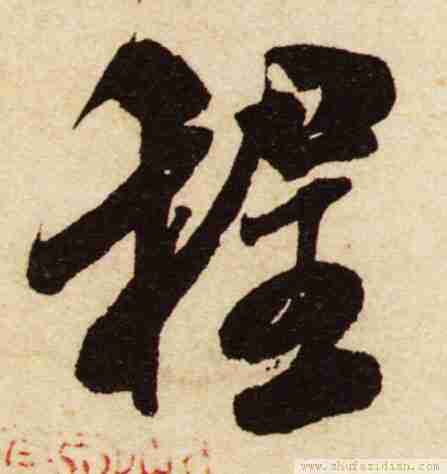 程
www.shufazidian.com